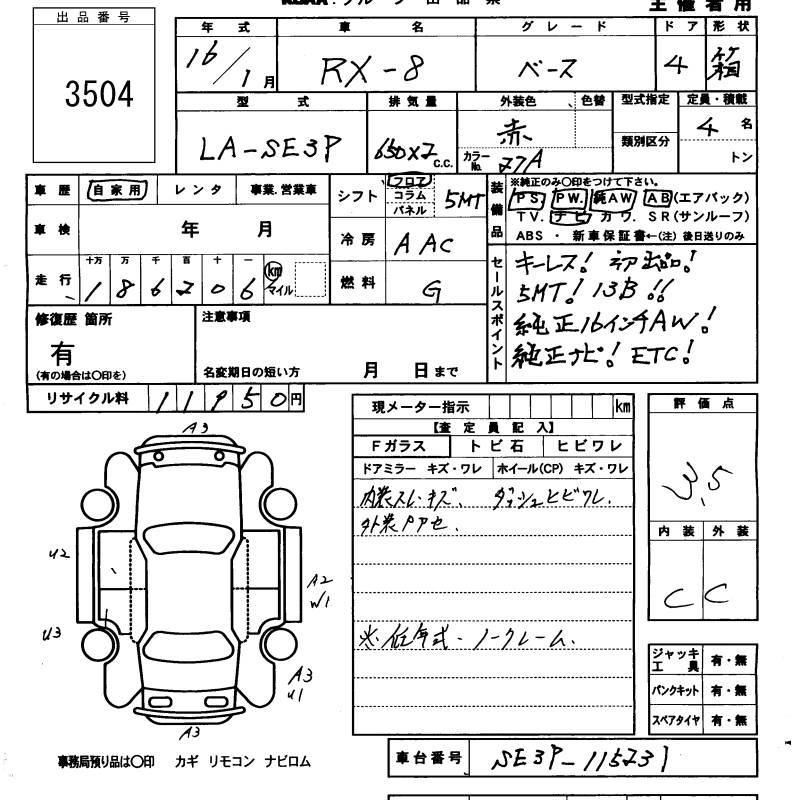 主催者用
出品番号
3504
年式 車名 グレード ドア 形状
16/1月 RX-8 ベース 4 箱
型式 排気量 外装色 色替 型式指定 定員・積載
LA-SE3P 650x2 c.c. 赤 カラーNo. 27A 類別区分 4名 トン
車歴 自家用 レンタ 事業.営業車
車検 年 月
走行 十万 万 千 百 十 一
186206 km マイル
シフト フロア コラム パネル 5MT
冷房 AAC
燃料 G
装備品
※純正のみ○印をつけて下さい。
PS. PW. 純AW AB(エアバック)
TV. ナビ カワ. SR(サンルーフ)
ABS ・ 新車保証書←(注) 後日送りのみ
セールスポイント
キーレス! 初出品!
5MT! 13B!!
純正16インチAW!
純正ナビ! ETC!
修復歴 箇所
有
(有の場合は○印を)
注意事項
名変期日の短い方 月 日まで
リサイクル料 11950円
現メーター指示 km
【査定員記入】
Fガラス トビ石 ヒビワレ
ドアミラー キズ・ワレ ホイール(CP) キズ・ワレ
内装スレ・キズ. ダッシュヒビワレ.
外装PPセ.
※低年式・ノークレーム.
評価点
3.5
内装 外装
C C
ジャッキ工具 有・無
パンクキット 有・無
スペアタイヤ 有・無
A3
U2
A2
W1
U3
A3
U1
A3
事務局預り品は○印 カギ リモコン ナビロム
車台番号 SE3P-115231